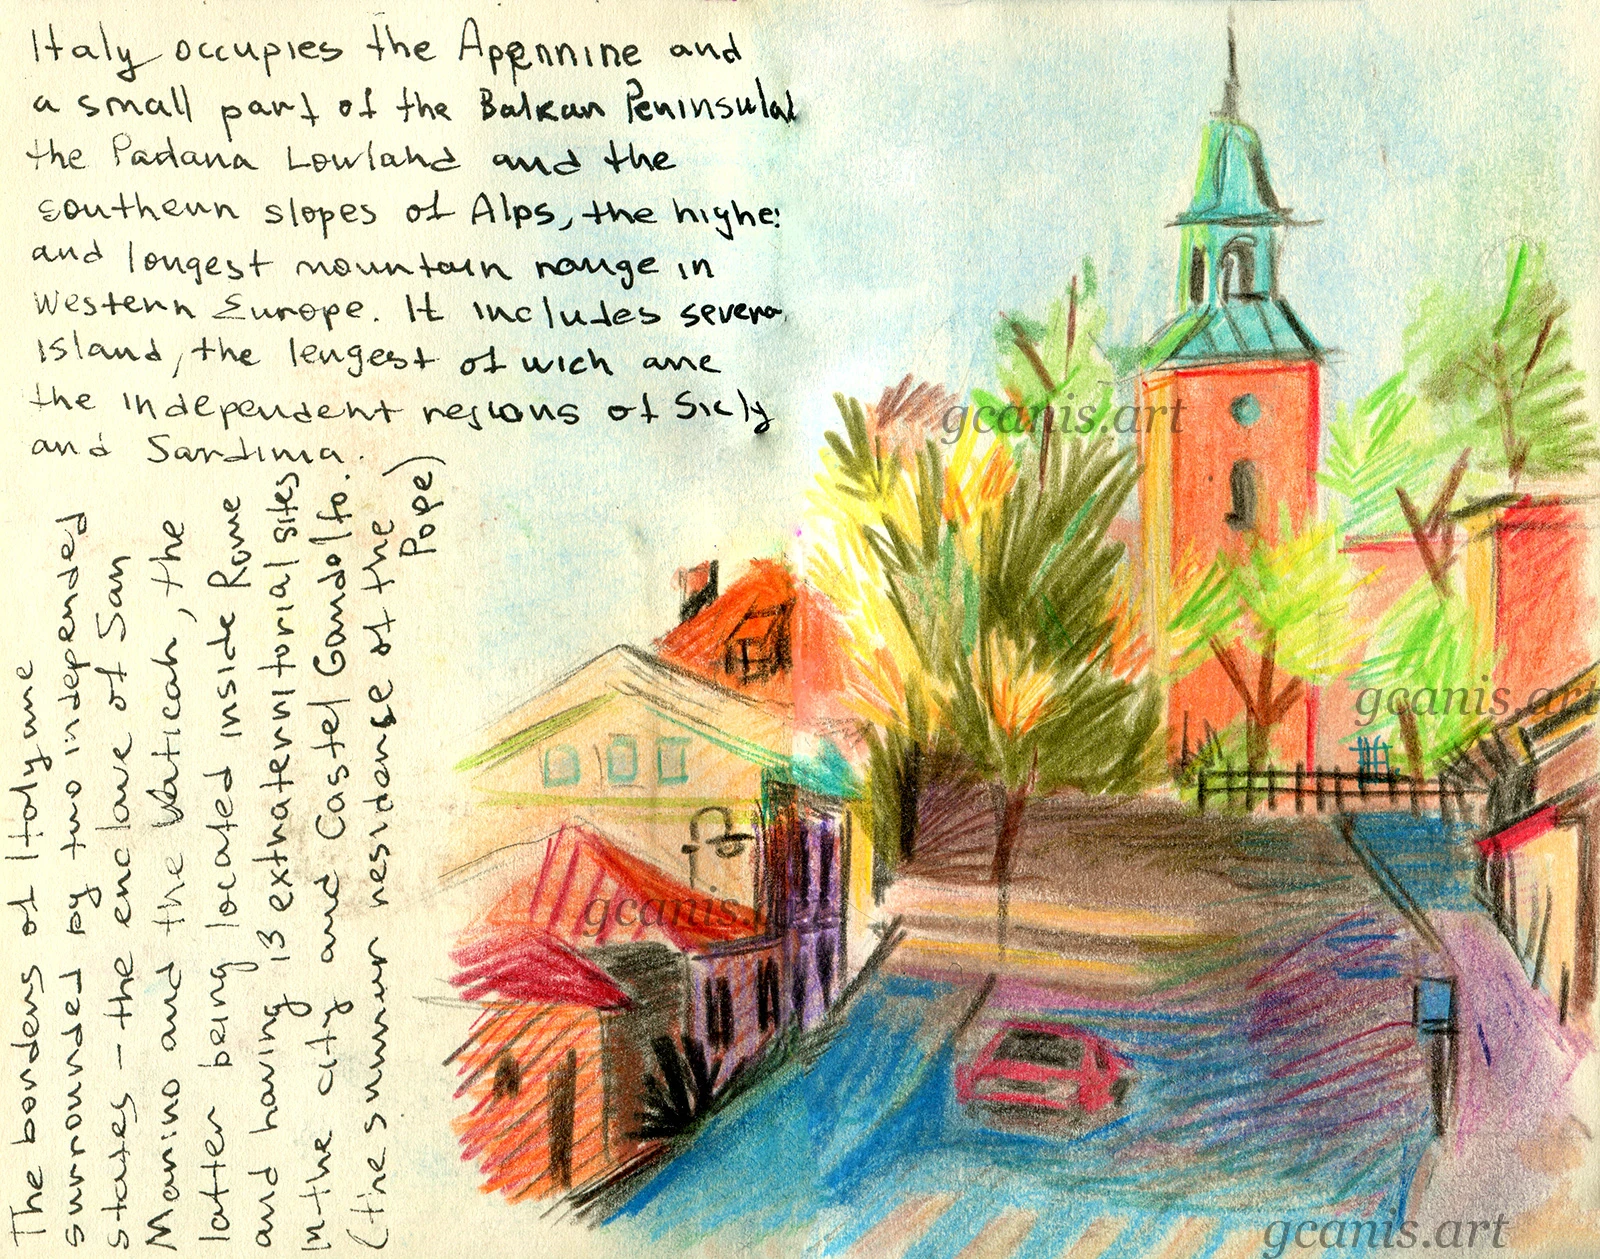 Italy occupies the Apennine and
a small part of the Balkan Peninsulal
the Padana Lowland and the
southern slopes of Alps, the highe
and longest mountain range in
Western Europe. It includes severa
island, the lengest of wich are
the independent regions of Sicly
and Sardinia.
The borders of Italy are
surrounded by two independed
states – the enclave of San
Marino and the Vatican, the
latter being located inside Rome
and having 13 extraterritorial sites
in the city and Castel Gandolfo.
(the summer residense of the
Pope)
gcanis.art
gcanis.art
gcanis.art
gcanis.art